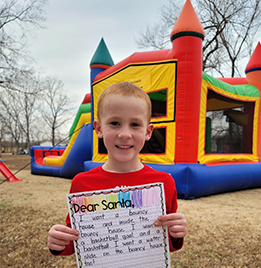 Dear Santa,
I want a bouncy
house and inside the
bouncy house, I want
a basketball goal and a
basketball. I want a water
slide on the bouncy house
too!